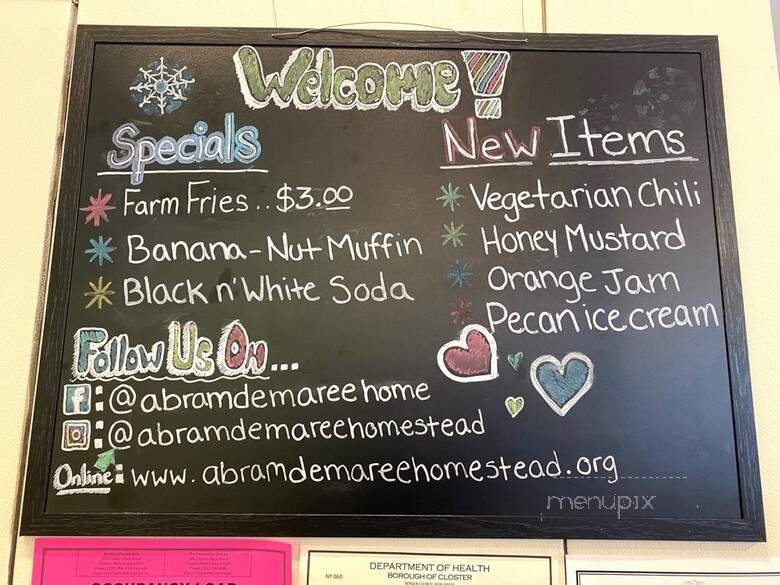 Welcome!
Specials
Farm Fries.. $3.00
Banana-Nut Muffin
Black n' White Soda
New Items
Vegetarian Chili
Honey Mustard
Orange Jam
Pecan ice cream
Follow Us On...
f : @abramdemareehome
: @abramdemareehomestead
Online: www.abramdemareehomestead.org
menupix
OCCUPANCY LOAD
Nº 060
DEPARTMENT OF HEALTH
BOROUGH OF CLOSTER